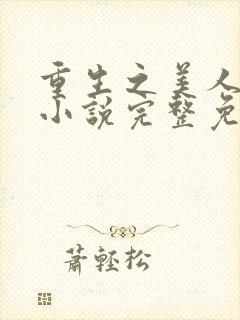 重生之美人
小說完整免
蕭輕松